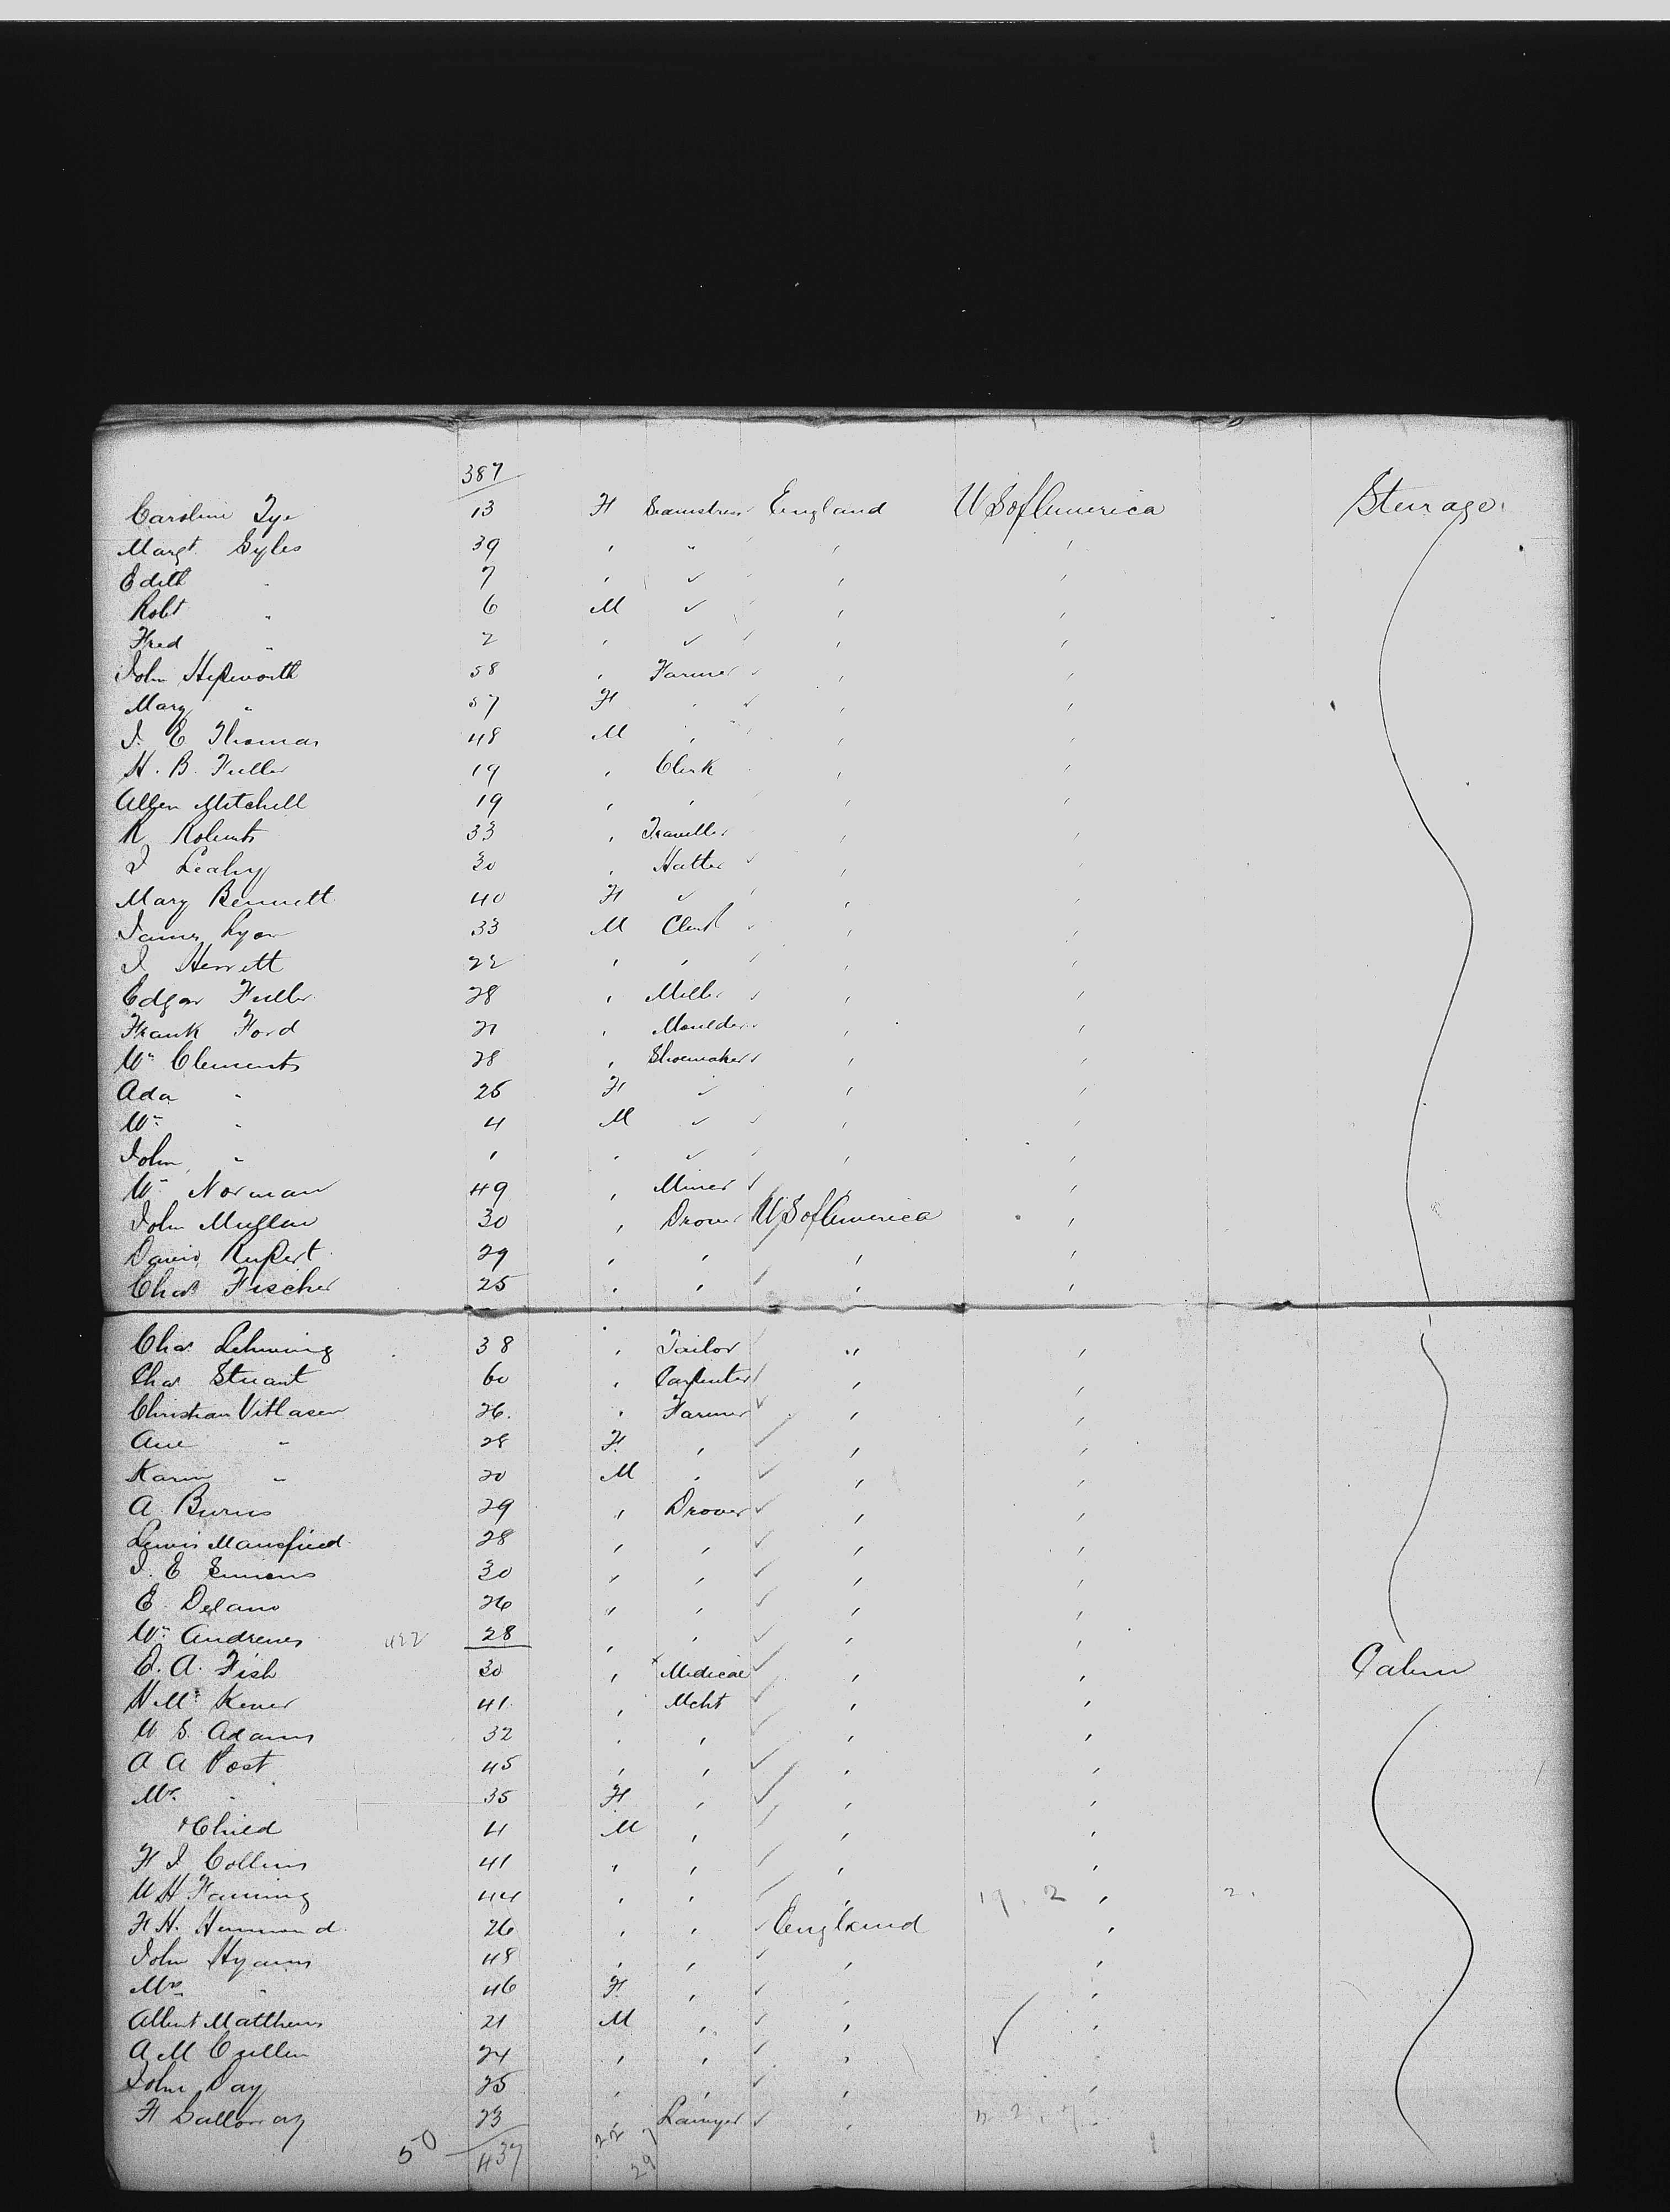 387
Caroline Tye 13 F Seamstress England U S of America Steerage
Margt. Syles 39 , " , ,
Edith " 7 , ✓ , ,
Robt " 6 M ✓ , ,
Fred " 2 , ✓ , ,
John Hepworth 58 , Farmer , ,
Mary " 57 F , , ,
J. E Thomas 48 M , , ,
H. B. Fuller 19 , Clerk , ,
Allen Mitchell 19 , , , ,
R Roberts 33 , Traveller , ,
J Leahy 30 , Hatter , ,
Mary Bennett 40 F ✓ , ,
James Lyon 33 M Clerk , ,
J Hewett 22 , , , ,
Edgar Fuller 28 , Miller , ,
Frank Ford 21 , Moulder , ,
Wm Clements 28 , Shoemaker , ,
Ada " 25 F ✓ , ,
Wm " 4 M ✓ , ,
John " 1 , ✓ , ,
Wm Norman 49 , Miner , ,
John Mullan 30 , Drover U S of America ,
David Rupert 29 , , , ,
Chas Fischer 25 , , , ,
Chas Lehming 38 , Tailor " ,
Chas Stuart 60 , Carpenter , ,
Christian Vitlasen 26. , Farmer , ,
Ane " 28 F , , ,
Karen " 20 M , , ,
A Burns 29 " Drover , ,
Lewis Mansfield 28 , , , ,
J. E Simons 30 , , , ,
E Delano 26 " , , ,
Wm Andrews 422 28 , , , ,
E. A. Fish 30 , Medical , , Cabin
H Mc Kever 41 , Mcht , ,
W S. Adams 32 , , , ,
A A Post 45 , , , ,
Mrs " 35 F , , ,
& Child 4 M , , ,
F J Collins 41 , , , ,
W H Fanning 44 , , , 19. 2 , 2.
F H. Hammond 26 , , England ,
John Hyams 48 , , , ,
Mrs " 46 F , , ,
Albert Matthews 21 M , , ,
A M Cullen 24 , , , ,
John Day 25 , , , ,
F Galloway 23 , Lawyer ,
50 437 22 29